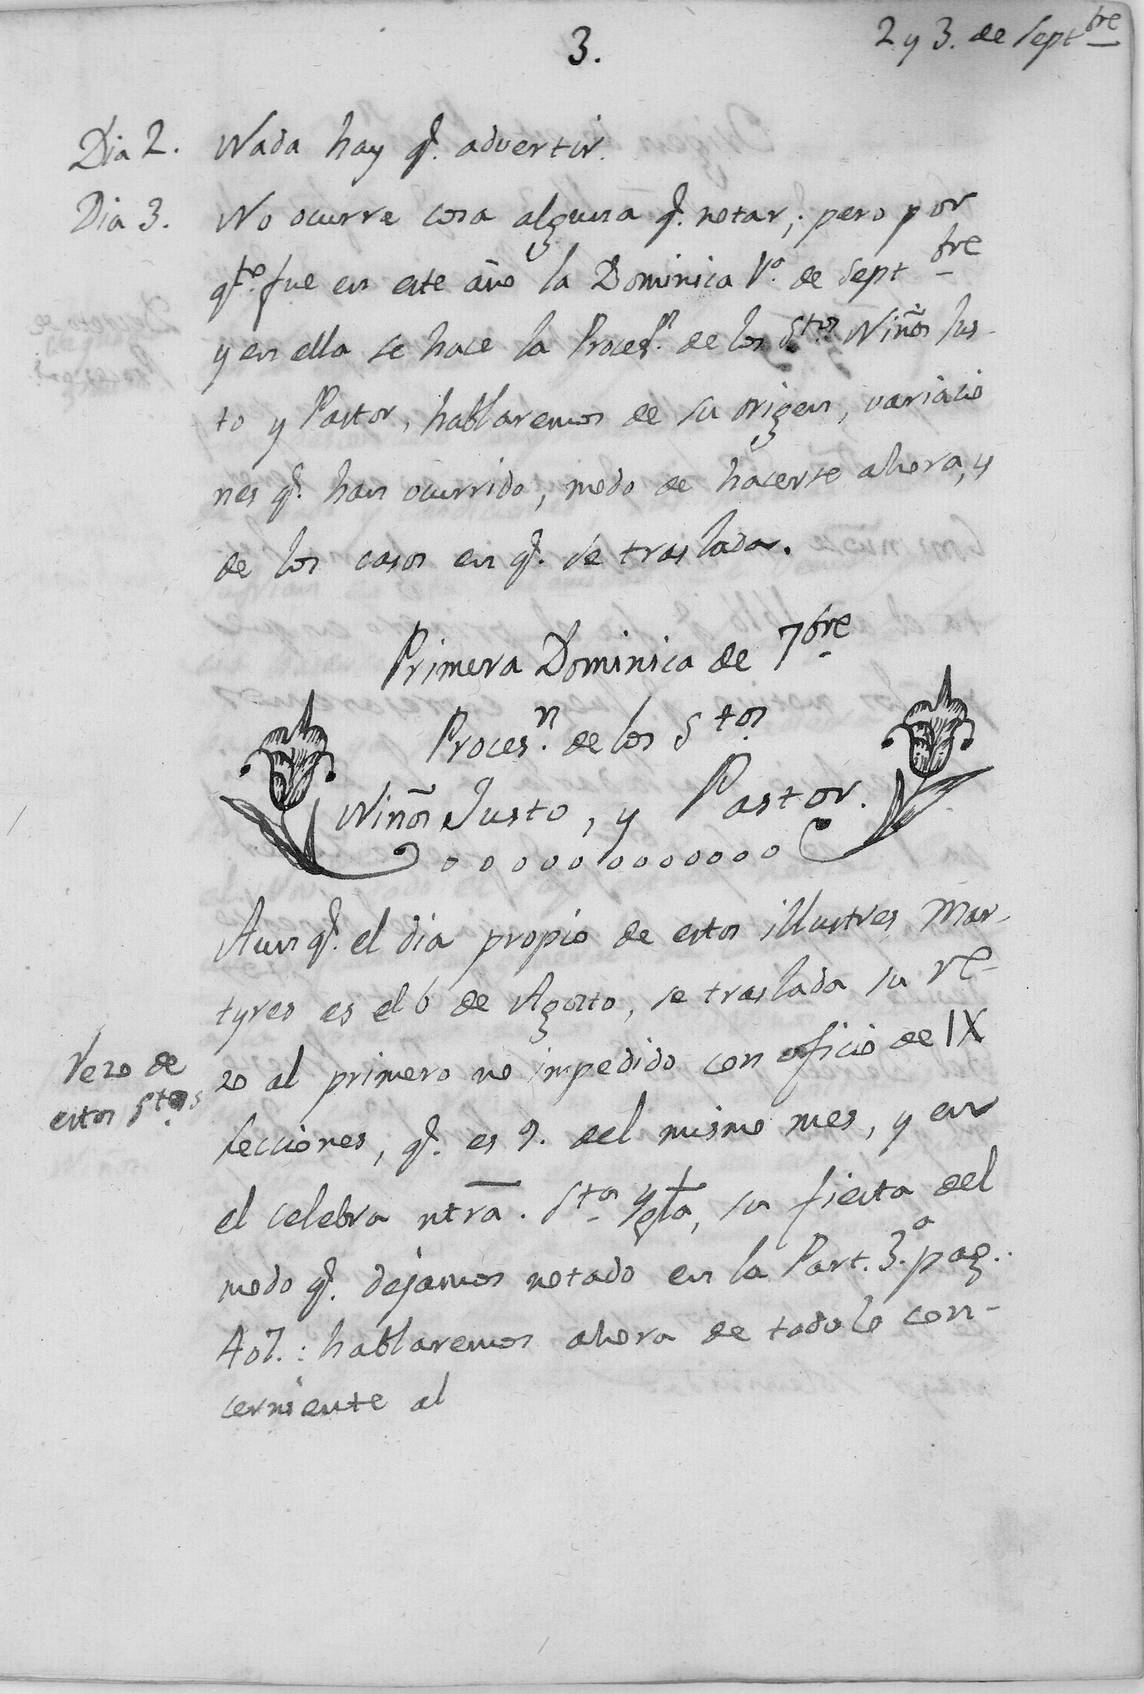 3.
2 y 3. de Septbre
Dia 2. Nada hay q. advertir.
Dia 3. No ocurre cosa alguna q. notar; pero por
qto. fue en este año la Dominica 1ª. de Septbre
y en ella se hace la Procesn. de los Stos. Niños Jus-
to y Pastor, hablaremos de su origen, variacio
nes q. han ocurrido, modo de hacerse ahora, y
de los casos en q. se traslada.
Primera Dominica de 7bre
Procesn. de los Stos.
Niños Justo, y Pastor.
Aunq. el dia propio de estos illustres Mar-
tyres es el 6 de Agosto, se traslada su re-
zo al primero no impedido con oficio de IX
Rezo de
estos Stos
lecciones, q. es 9. del mismo mes, y en
el celebra ntra. Sta Ygla, su fiesta del
modo q. dejamos notado en la Part. 3.ª pag.
407.: hablaremos ahora de todo lo con-
cerniente al